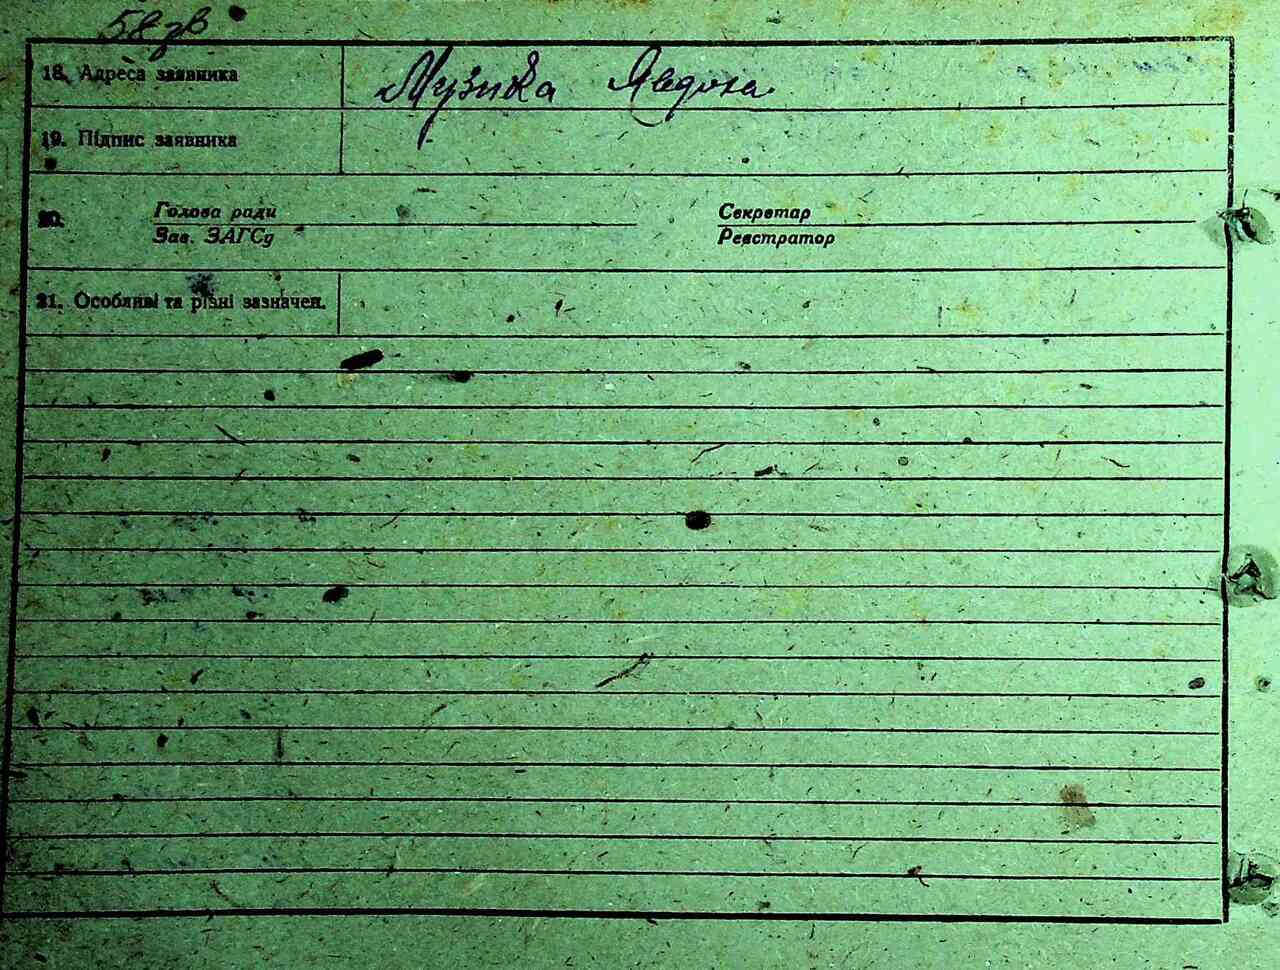 58 зв
18. Адреса заявника Музика Явдоха
19. Підпис заявника
20. Голова ради Секретар
Зав. ЗАГСу Реєстратор
21. Особливі та різні зазначен.